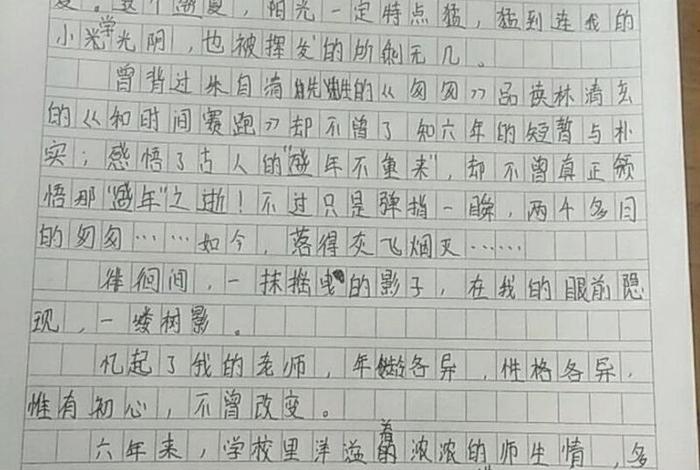 夏。这个盛夏，阳光一定特点猛，猛到连我的
小学光阴，也被挥发的所剩无几。
曾背过朱自清先生的《匆匆》品读林清玄
的《和时间赛跑》却不曾了知六年的短暂与朴
实；感悟了古人的"盛年不重来"，却不曾真正领
悟那"盛年"之逝！不过只是弹指一瞬，两千多日
的匆匆……如今，落得灰飞烟灭……
徘徊间，一抹摇曳的影子，在我的眼前隐
现，一缕树影。
忆起了我的老师，年龄各异，性格各异，
惟有初心，不曾改变。
六年来，学校里洋溢着浓浓的师生情，多